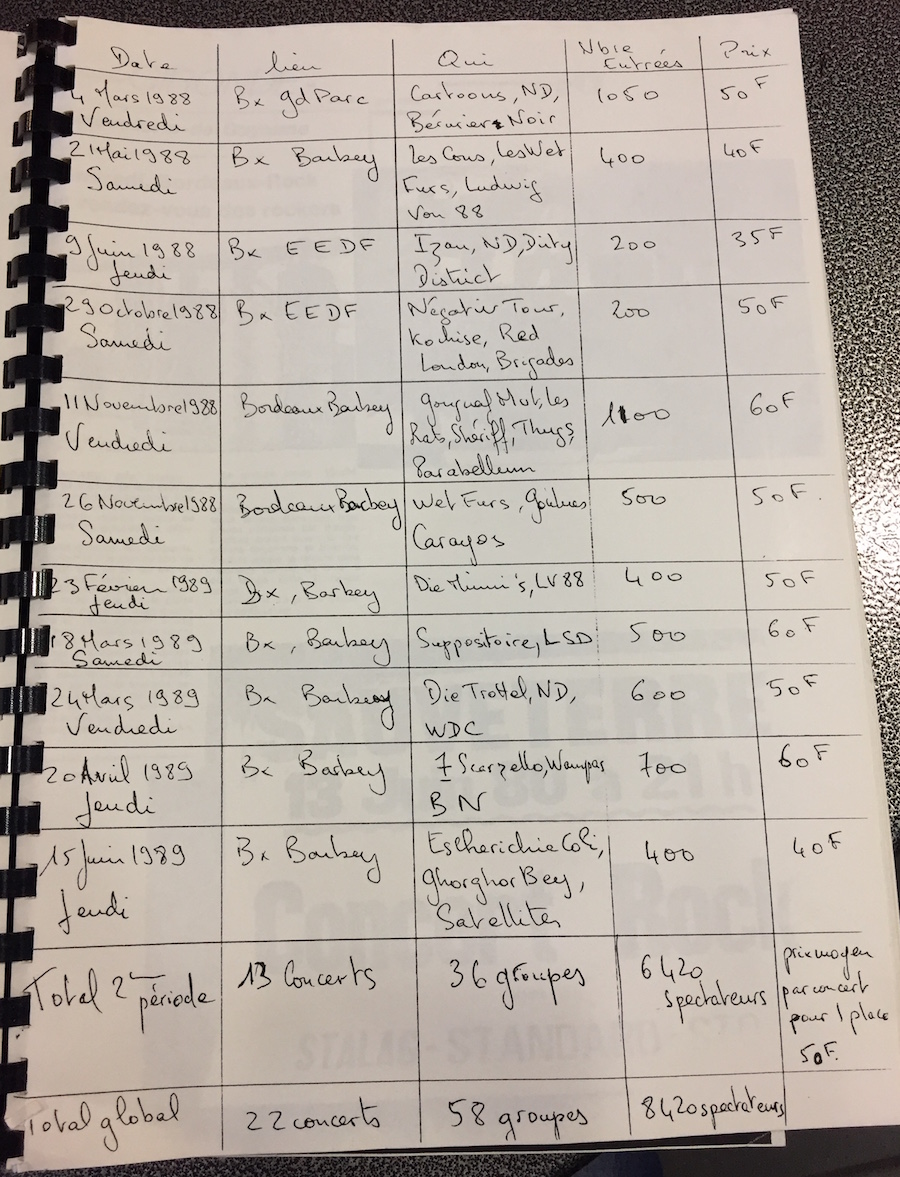 Date lieu Qui Nbre Entrées Prix
4 Mars 1988 Bx gd Parc Cartoons, ND, 1050 50F
Vendredi Bérurier Noir
21 Mai 1988 Bx Barbey Les Cons, Les Wet 400 40F
Samedi Furs, Ludwig
Von 88
9 Juin 1988 Bx EEDF Izan, ND, Dirty 200 35F
Jeudi District
29 Octobre 1988 Bx EEDF Négativ Tour, 200 50F
Samedi Kochise, Red
London, Brigades
11 Novembre 1988 Bordeaux Barbey Gougnaf Mut, Les 1100 60F
Vendredi Rats, Shériff, Thugs,
Parabellum
26 Novembre 1988 Bordeaux Barbey Wet Furs, Goulues 500 50F.
Samedi Carayos
23 Février 1989 Bx, Barbey Die Mimi's, LV88 400 50F
Jeudi
18 Mars 1989 Bx, Barbey Suppositoire, LSD 500 60F
Samedi
24 Mars 1989 Bx Barbey Die Trottel, ND, 600 50F
Vendredi WDC
20 Avril 1989 Bx Barbey Scarzello, Wampas 700 60F
Jeudi BN
15 Juin 1989 Bx Barbey Escherichie Coli, 400 40F
Jeudi Ghorghor Bey,
Satellites
Total 2 période 13 Concerts 36 groupes 6420 spectateurs prix moyen
par concert
pour 1 place
50F.
Total global 22 concerts 58 groupes 8420 spectateurs